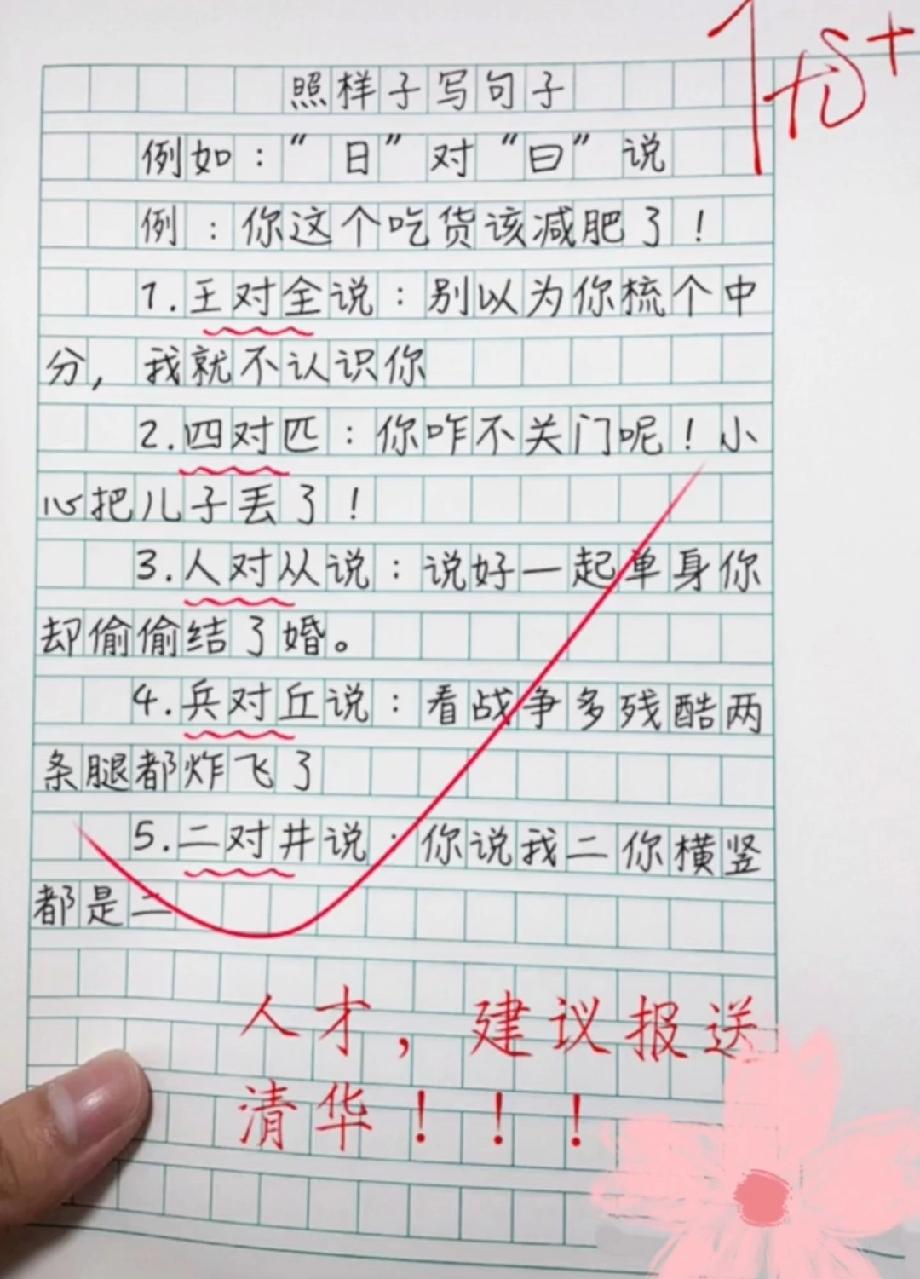 优+
照样子写句子
例如：“日”对“曰”说
例：你这个吃货该减肥了！
1.王对全说：别以为你梳个中
分，我就不认识你
2.四对匹：你咋不关门呢！小
心把儿子丢了！
3.人对从说：说好一起单身你
却偷偷结了婚。
4.兵对丘说：看战争多残酷两
条腿都炸飞了
5.二对井说：你说我二你横竖
都是二
人才，建议报送
清华！！！